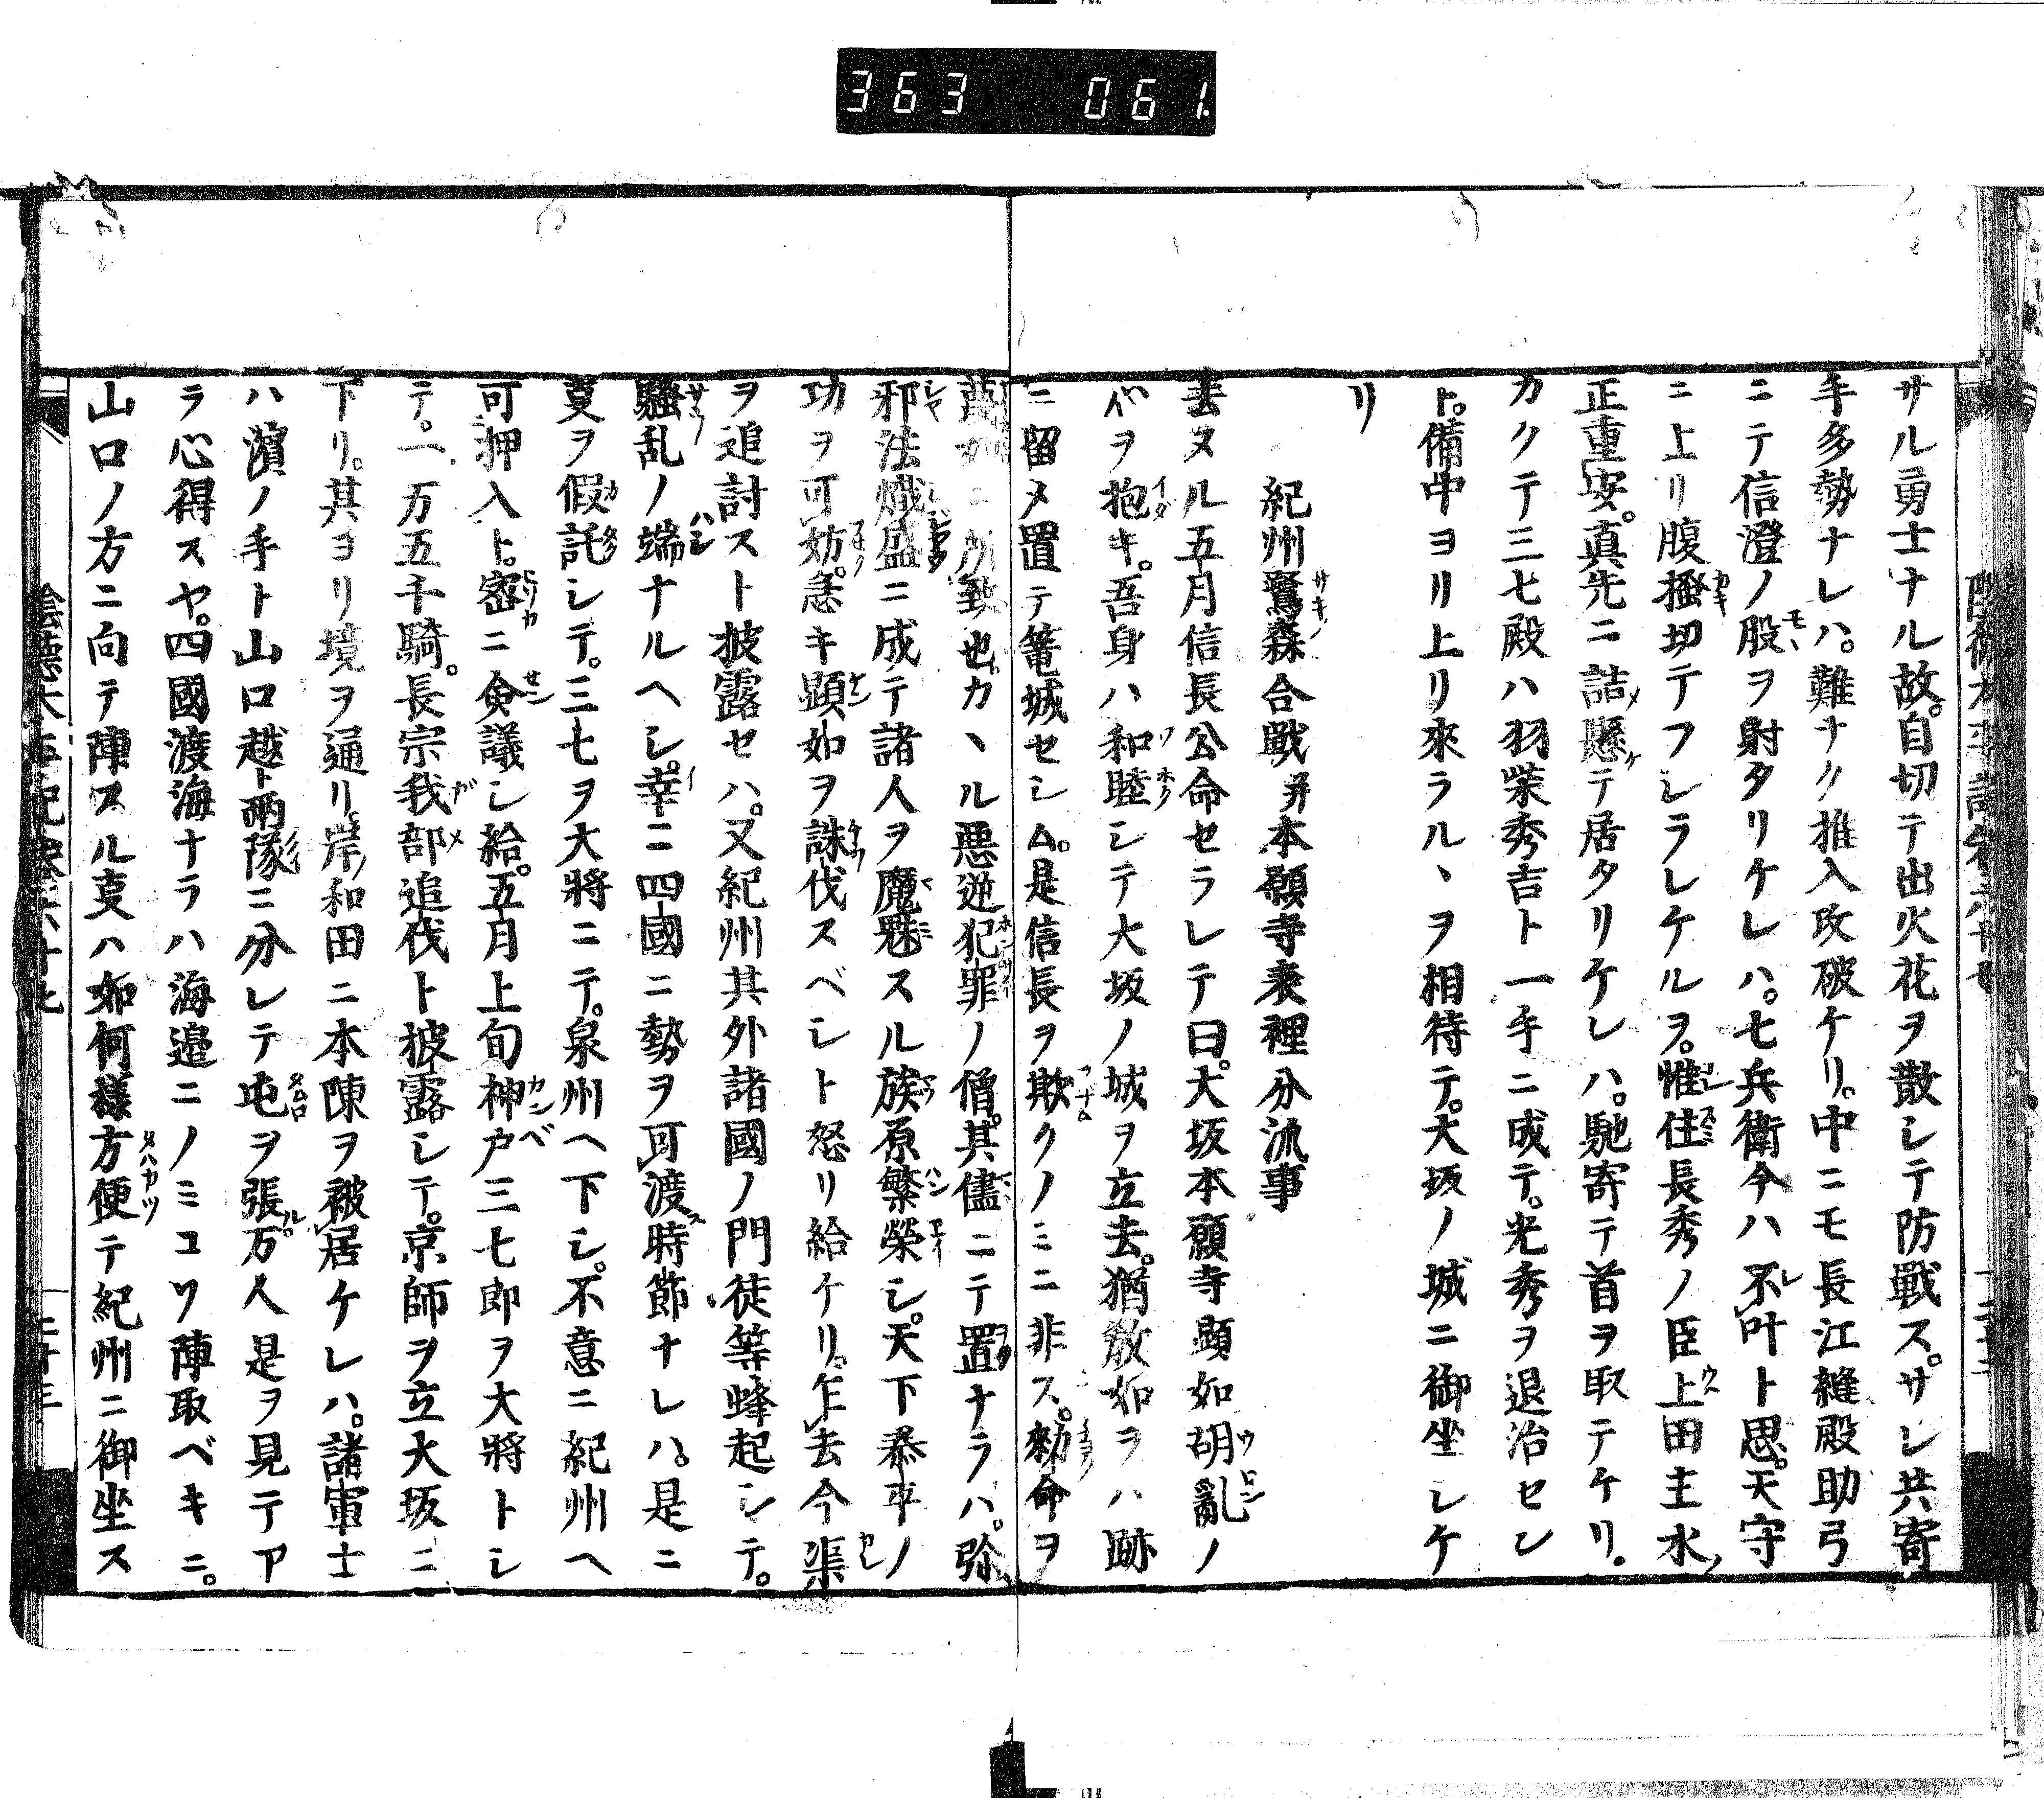 363 061
サル勇士ナル故。自切テ出火花ヲ散シテ防戰ス。サレ共寄
手多勢ナレハ。難ナク推入攻破ケリ。中ニモ長江縫殿助弓
ニテ信澄ノ股ヲ射タリケレハ。七兵衛今ハ不叶ト思。天守
ニ上リ腹搔切テフレラレケルヲ。惟住長秀ノ臣上田主水
正重安。真先ニ詰懸テ居タリケレハ。馳寄テ首ヲ取テケリ。
カクテ三七殿ハ羽柴秀吉ト一手ニ成テ。光秀ヲ退治セン
ト。備中ヨリ上リ來ラル丶ヲ相待テ。大坂ノ城ニ御坐シケ
リ
紀州鷺森合戰并本願寺表裡分流事
去ヌル五月信長公命セラレテ曰。大坂本願寺顕如胡亂ノ
バヲ抱キ。吾身ハ和睦シテ大坂ノ城ヲ立去。猶教如ヲハ跡
ニ留メ置テ篭城セシム。是信長ヲ欺クノミニ非ス。勅命ヲ
蔑如ニ所致也。カ丶ル悪逆犯罪ノ僧。其儘ニテ置ナラハ。弥
邪法熾盛ニ成テ諸人ヲ魔魅スル族原繁榮シ。天下泰平ノ
功ヲ可妨。急キ顕如ヲ誅伐スベシト怒リ給ケリ。乍去今渠
ヲ追討スト披露セハ。又紀州其外諸國ノ門徒等蜂起シテ。
騷乱ノ端ナルヘシ。幸ニ四國ニ勢ヲ可渡時節ナレハ。是ニ
叓ヲ假託シテ。三七ヲ大將ニテ。泉州ヘ下シ。不意ニ紀州ヘ
可押入ト。密ニ僉議シ給。五月上旬神户三七郎ヲ大將トシ
テ。一万五千騎。長宗我部追伐ト披露シテ。京師ヲ立大坂ニ
下リ。其ヨリ境ヲ通リ。岸和田ニ本陳ヲ被居ケレハ。諸軍士
ハ濱ノ手ト山口越ト兩隊ニ分レテ屯ヲ張。万人是ヲ見テア
ラ心得スヤ。四國渡海ナラハ海邉ニノミコソ陣取ベキニ。
山口ノ方ニ向テ陣スル叓ハ如何樣方便テ紀州ニ御坐ス